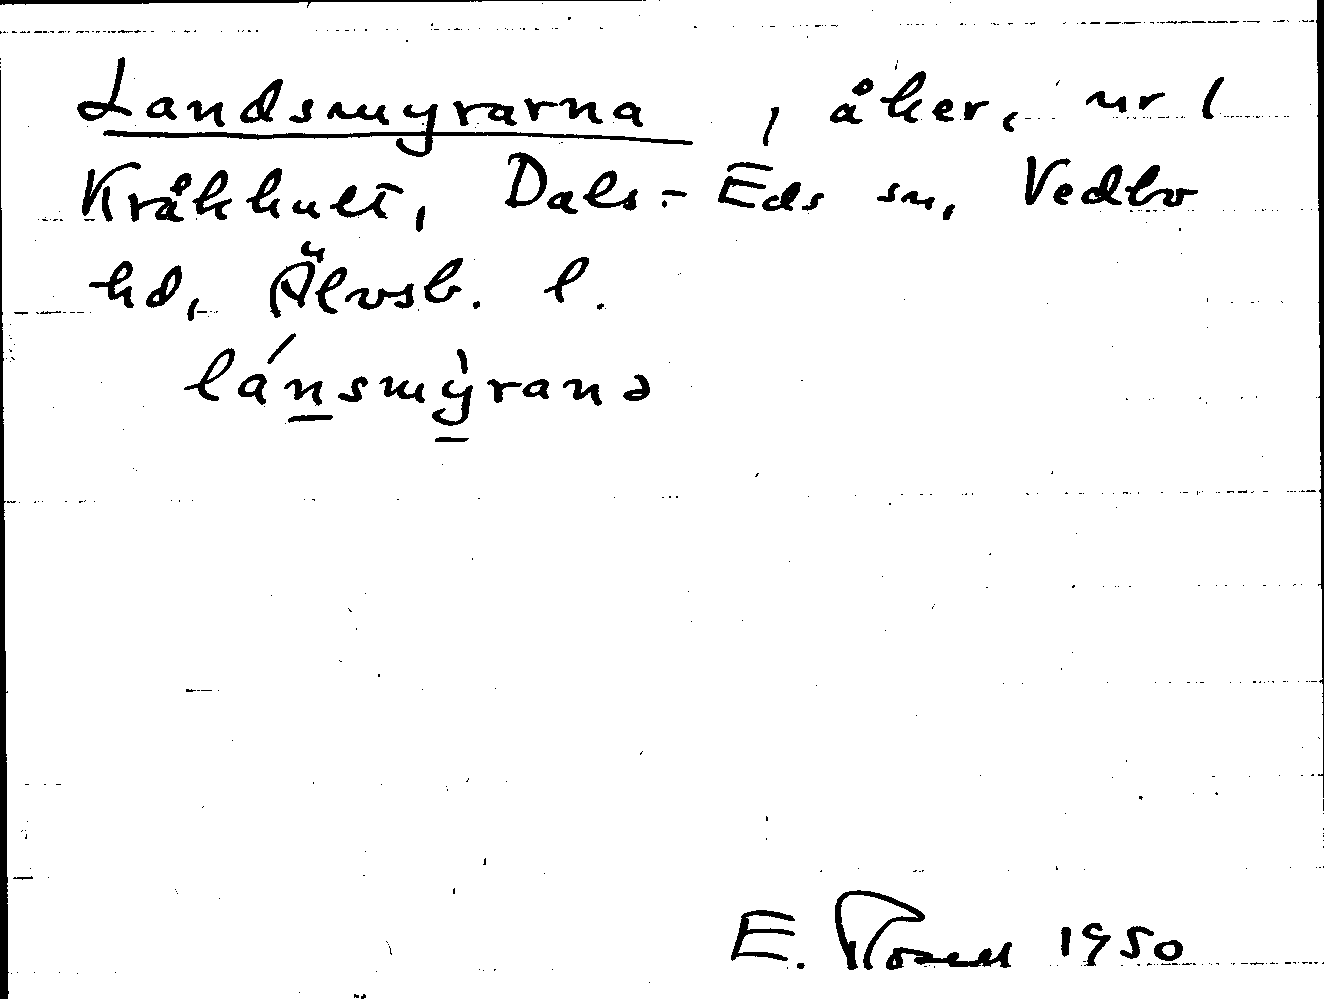 Landsmyrarna, åker, nr 1
Kråkhult, Dals-Eds sn, Vedbo
hd, Älvsb. l.
lánsmỳranə
E. Rosell 1950